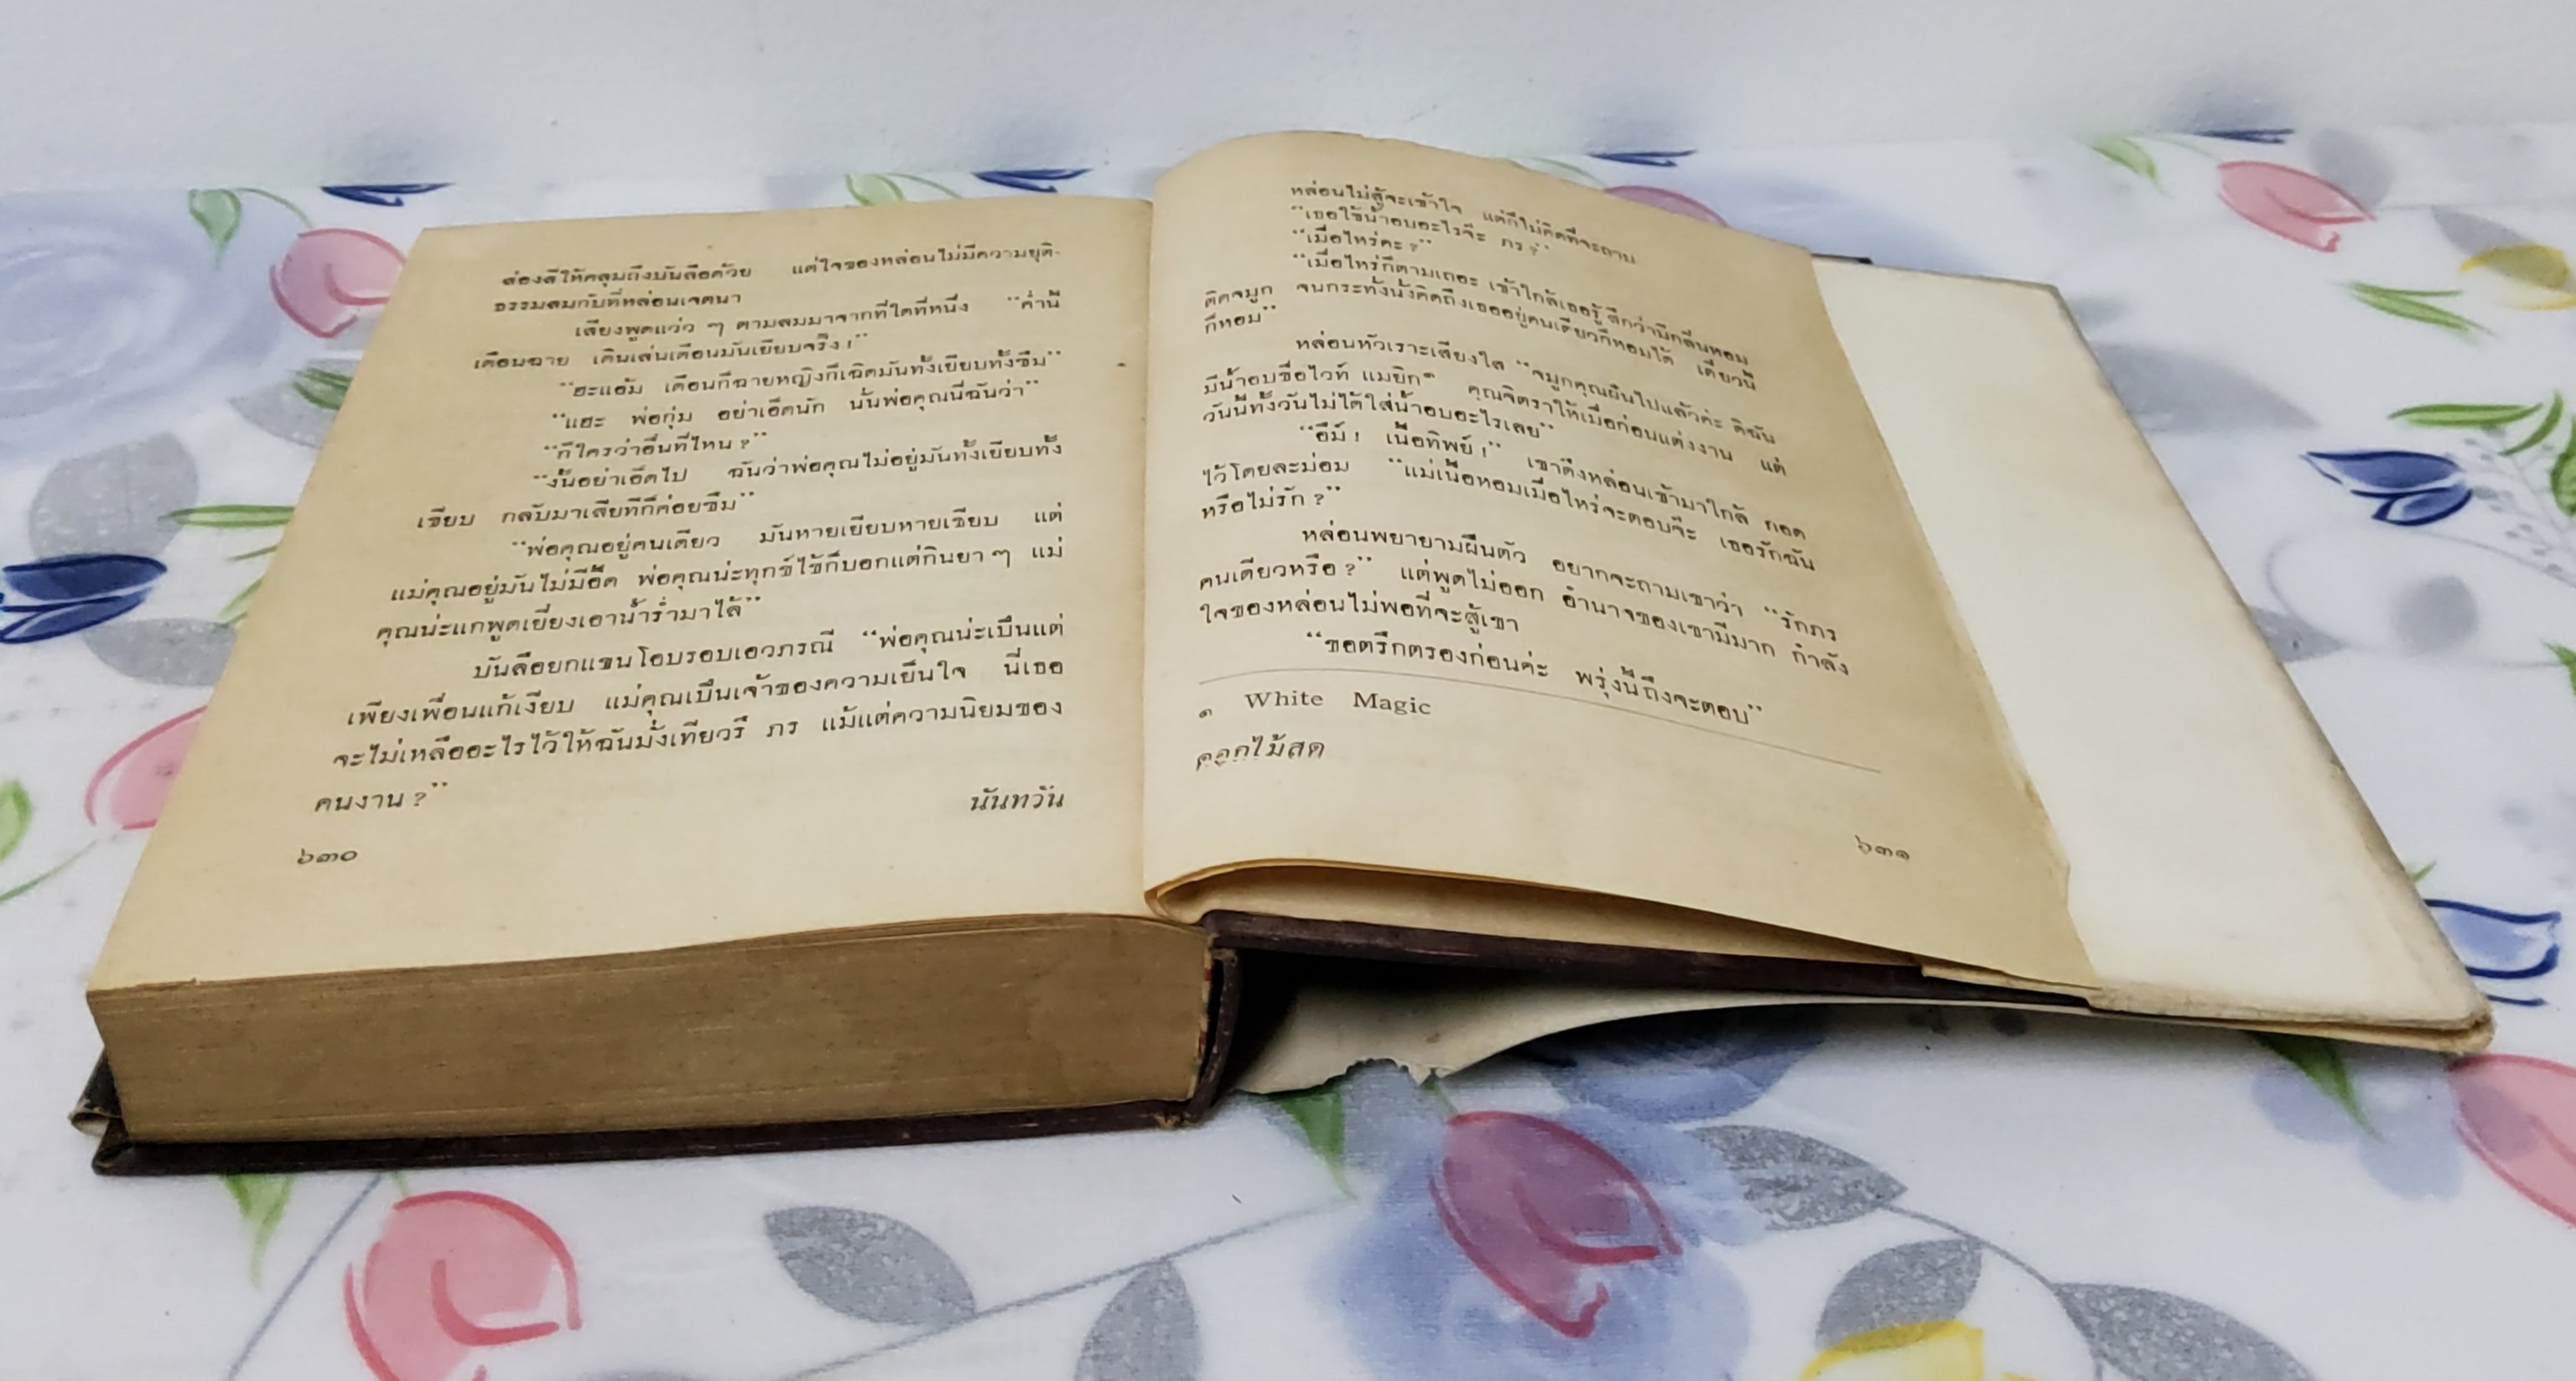 ส่องสีให้คลุมถึงบันลือด้วย แต่ใจของหล่อนไม่มีความยุติ-
ธรรมสมกับที่หล่อนเจตนา
เสียงพูดแว่ว ๆ ตามลมมาจากที่ใดที่หนึ่ง “ค่ำนี้
เดือนฉาย เดินเล่นเดือนมันเยียบจริง!”
“ฮะแอ้ม เดือนก็ฉายหญิงก็เฉิดมันทั้งเยียบทั้งซึม”
“แฮะ พ่อกุ่ม อย่าเอ็ดนัก นั้นพ่อคุณนี่ฉันว่า”
“ก็ใครว่าอื่นที่ไหน?”
“งั้นอย่าเอ็ดไป ฉันว่าพ่อคุณไม่อยู่มันทั้งเยียบทั้ง
เซียบ กลับมาเสียทีก็ค่อยซึม”
“พ่อคุณอยู่คนเดียว มันหายเยียบหายเซียบ แต่
แม่คุณอยู่มันไม่มีอึด พ่อคุณน่ะทุกข์ไข้ก็บอกแต่กินยา ๆ แม่
คุณน่ะแกพูดเยี่ยงเอาน้ำร่ำมาไล้”
บันลือยกแขนโอบรอบเอวภรณี “พ่อคุณน่ะเป็นแต่
เพียงเพื่อนแก้เงียบ แม่คุณเป็นเจ้าของความเย็นใจ นี่เธอ
จะไม่เหลืออะไรไว้ให้ฉันมั่งเทียวรึ ภร แม้แต่ความนิยมของ
คนงาน?”
นันทวัน
๖๓๐
หล่อนไม่สู้จะเข้าใจ แต่ก็ไม่คิดที่จะถาม
“เธอใช้น้ำอบอะไรจ๊ะ ภร?”
“เมื่อไหร่คะ?”
“เมื่อไหร่ก็ตามเถอะ เข้าใกล้เธอรู้สึกว่ามีกลิ่นหอม
ติดจมูก จนกระทั่งนั่งคิดถึงเธออยู่คนเดียวก็หอมได้ เดี๋ยวนี้
ก็หอม”
หล่อนหัวเราะเสียงใส “จมูกคุณฝันไปแล้วค่ะ ดิฉัน
มีน้ำอบชื่อไวท์ แมยิก๑ คุณจิตราให้เมื่อก่อนแต่งงาน แต่
วันนี้ทั้งวันไม่ได้ใส่น้ำอบอะไรเลย”
“อึม์! เนื้อทิพย์!” เขาดึงหล่อนเข้ามาใกล้ กอด
ไว้โดยละม่อม “แม่เนื้อหอมเมื่อไหร่จะตอบจ๊ะ เธอรักฉัน
หรือไม่รัก?”
หล่อนพยายามฝืนตัว อยากจะถามเขาว่า “รักภร
คนเดียวหรือ?” แต่พูดไม่ออก อำนาจของเขามีมาก กำลัง
ใจของหล่อนไม่พอที่จะสู้เขา
“ขอตรึกตรองก่อนค่ะ พรุ่งนี้ถึงจะตอบ”
๑ White Magic
ดอกไม้สด
๖๓๑